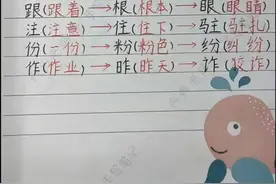 跟(跟着)→根(根本)→眼(眼睛)
注(注意)→住(住下)→马主(马主扎)
份(一份)→粉(粉色)→纷(纠纷)
作(作业)→昨(昨天)→诈(狡诈)